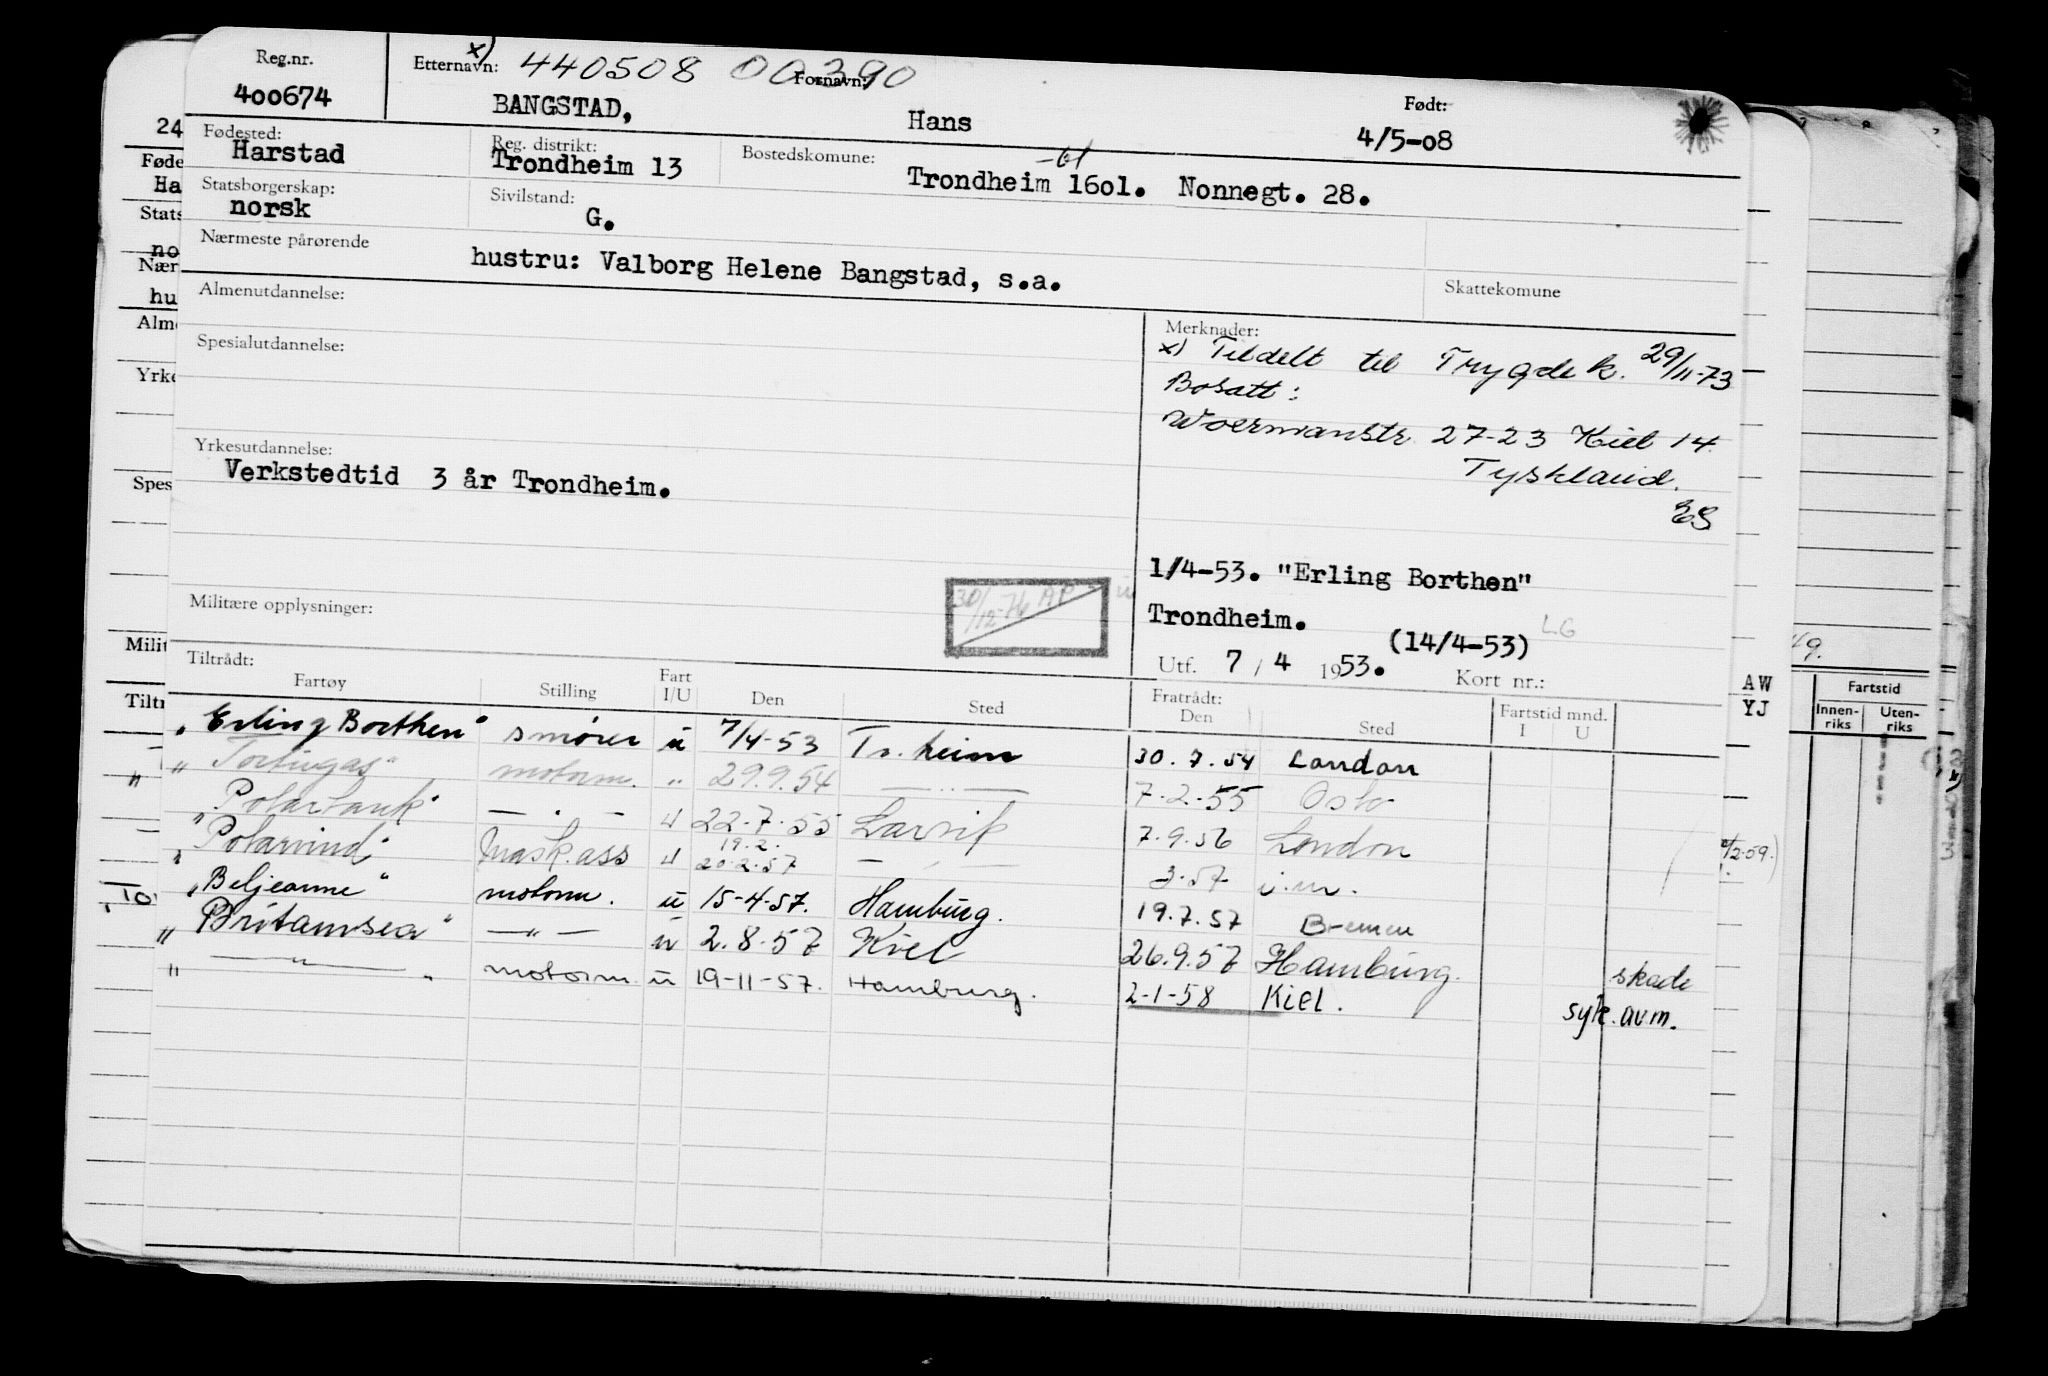 Reg.nr. Etternavn: x) 440508 00390 Fornavn: Født:
400674 BANGSTAD, Hans 4/5-08
Fødested: Reg. distrikt: Bostedskomune:
Harstad Trondheim 13 Trondheim 1601. Nonnegt. 28.
Statsborgerskap: Sivilstand:
norsk G.
Nærmeste pårørende
hustru: Valborg Helene Bangstad, s.a. Skattekomune
Almenutdannelse:
Spesialutdannelse:
Yrkesutdannelse:
Verkstedtid 3 år Trondheim.
Merknader:
x) Tildelt til Trygdek. 29/11-73
Bosatt:
Woermanstr 27-23 Kiel 14.
Tyskland.
ES
1/4-53. "Erling Borthen"
Trondheim.
(14/4-53) LG
Utf. 7/4 1953. Kort nr.:
Militære opplysninger: 30/12-76 AP
Tiltrådt: Fratrådt:
Fartøy Stilling Fart I/U Den Sted Den Sted Fartstid mnd. I U
"Erling Borthen" smører u 7/4-53 Tr.heim 30.7.54 London
"Tortugas" motorm. " 29.9.54 — " — 7.2.55 Oslo
"Polartank" — " — u 22.7.55 Larvik 7.9.56 London
"Polarvind" Mask.ass u 19.2. 20.2.57 — " — 3.57 u.m.
"Beljeanne" motorm. u 15-4-57. Hamburg. 19.7.57 Bremen
"Britamsea" — " — u 2.8.57 Kiel 26.9.57 Hamburg. skade
" — " — " motorm. u 19-11-57. Hamburg. 2-1-58 Kiel. syk. avm.
AW
YJ
Fartstid
Innen-riks Uten-riks